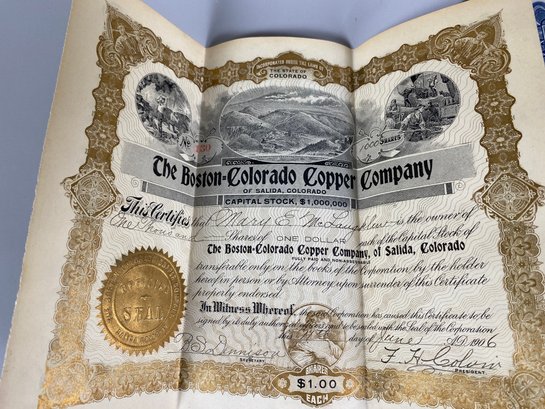 INCORPORATED UNDER THE LAWS OF
THE STATE OF
COLORADO
No. 
1000 SHARES
The Boston-Colorado Copper Company
OF SALIDA, COLORADO
CAPITAL STOCK, $1,000,000
This Certifies that Mary E. McLaughlin is the owner of
One Thousand Shares of ONE DOLLAR each of the Capital Stock of
The Boston-Colorado Copper Company, of Salida, Colorado
FULLY PAID AND NON-ASSESSABLE
transferable only on the books of the Corporation by the holder
hereof in person or by Attorney upon surrender of this Certificate
properly endorsed.
In Witness Whereof, the said Corporation has caused this Certificate to be
signed by its duly authorized officers and to be sealed with the Seal of the Corporation
this day of June A.D. 1906
SEAL
SECRETARY.
PRESIDENT.
SHARES
$1.00
EACH